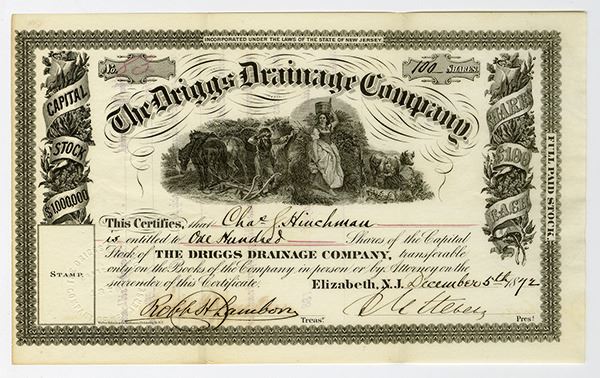 INCORPORATED UNDER THE LAWS OF THE STATE OF NEW JERSEY
No. 53
100 SHARES
The Driggs Drainage Company,
CAPITAL
STOCK
$1,000,000
SHARES
$100
EACH
FULL PAID STOCK.
This Certifies, that Chas J. Hinchman
is entitled to One Hundred Shares of the Capital
Stock of THE DRIGGS DRAINAGE COMPANY, transferable
only on the Books of the Company in person or by Attorney on the
surrender of this Certificate. Elizabeth, N.J. December 5th 1872
STAMP.
Treasr.
Prest.